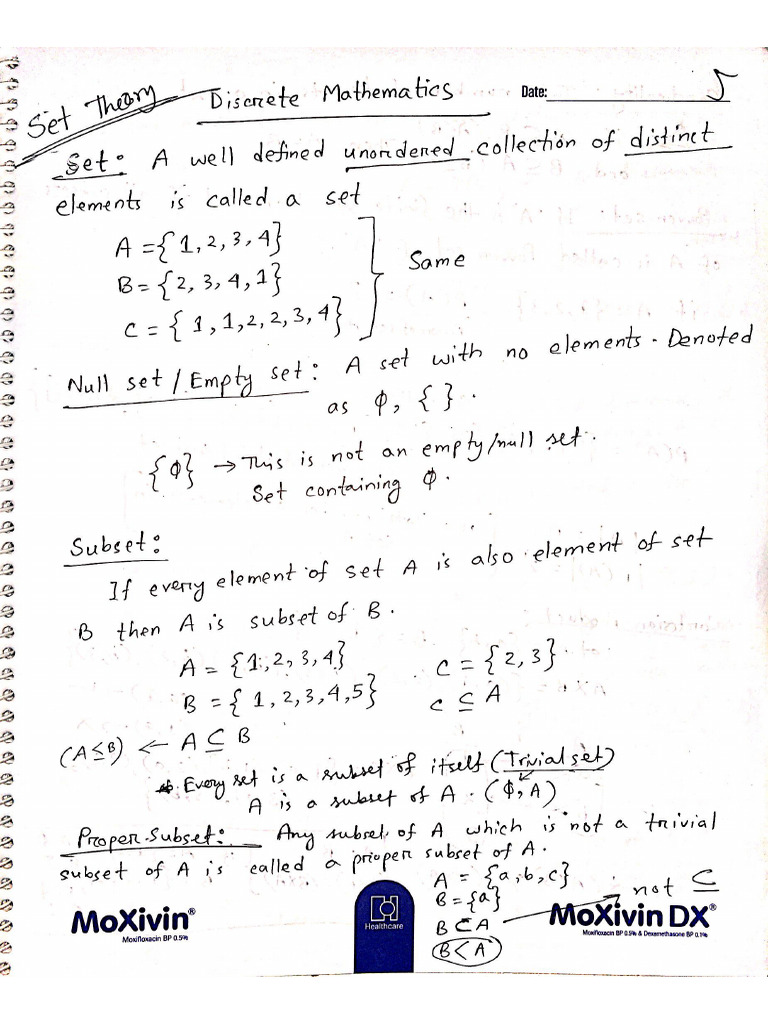 Set Theory
Discrete Mathematics
Date:
5
Set: A well defined unordered collection of distinct
elements is called a set
A = {1, 2, 3, 4}
B = {2, 3, 4, 1}
C = {1, 1, 2, 2, 3, 4}
Same
Null set / Empty set: A set with no elements. Denoted
as φ, { }.
{φ} → This is not an empty/null set.
Set containing φ.
Subset:
If every element of set A is also element of set
B then A is subset of B.
A = {1, 2, 3, 4} C = {2, 3}
B = {1, 2, 3, 4, 5} C ⊆ A
(A ≤ B) ← A ⊆ B
* Every set is a subset of itself (Trivial set)
A is a subset of A. (φ, A)
Proper Subset: Any subset of A which is not a trivial
subset of A is called a proper subset of A.
A = {a, b, c}
B = {a}
B ⊂ A
not ⊆
B < A
MoXivin®
Moxifloxacin BP 0.5%
Healthcare
MoXivin DX®
Moxifloxacin BP 0.5% & Dexamethasone BP 0.1%